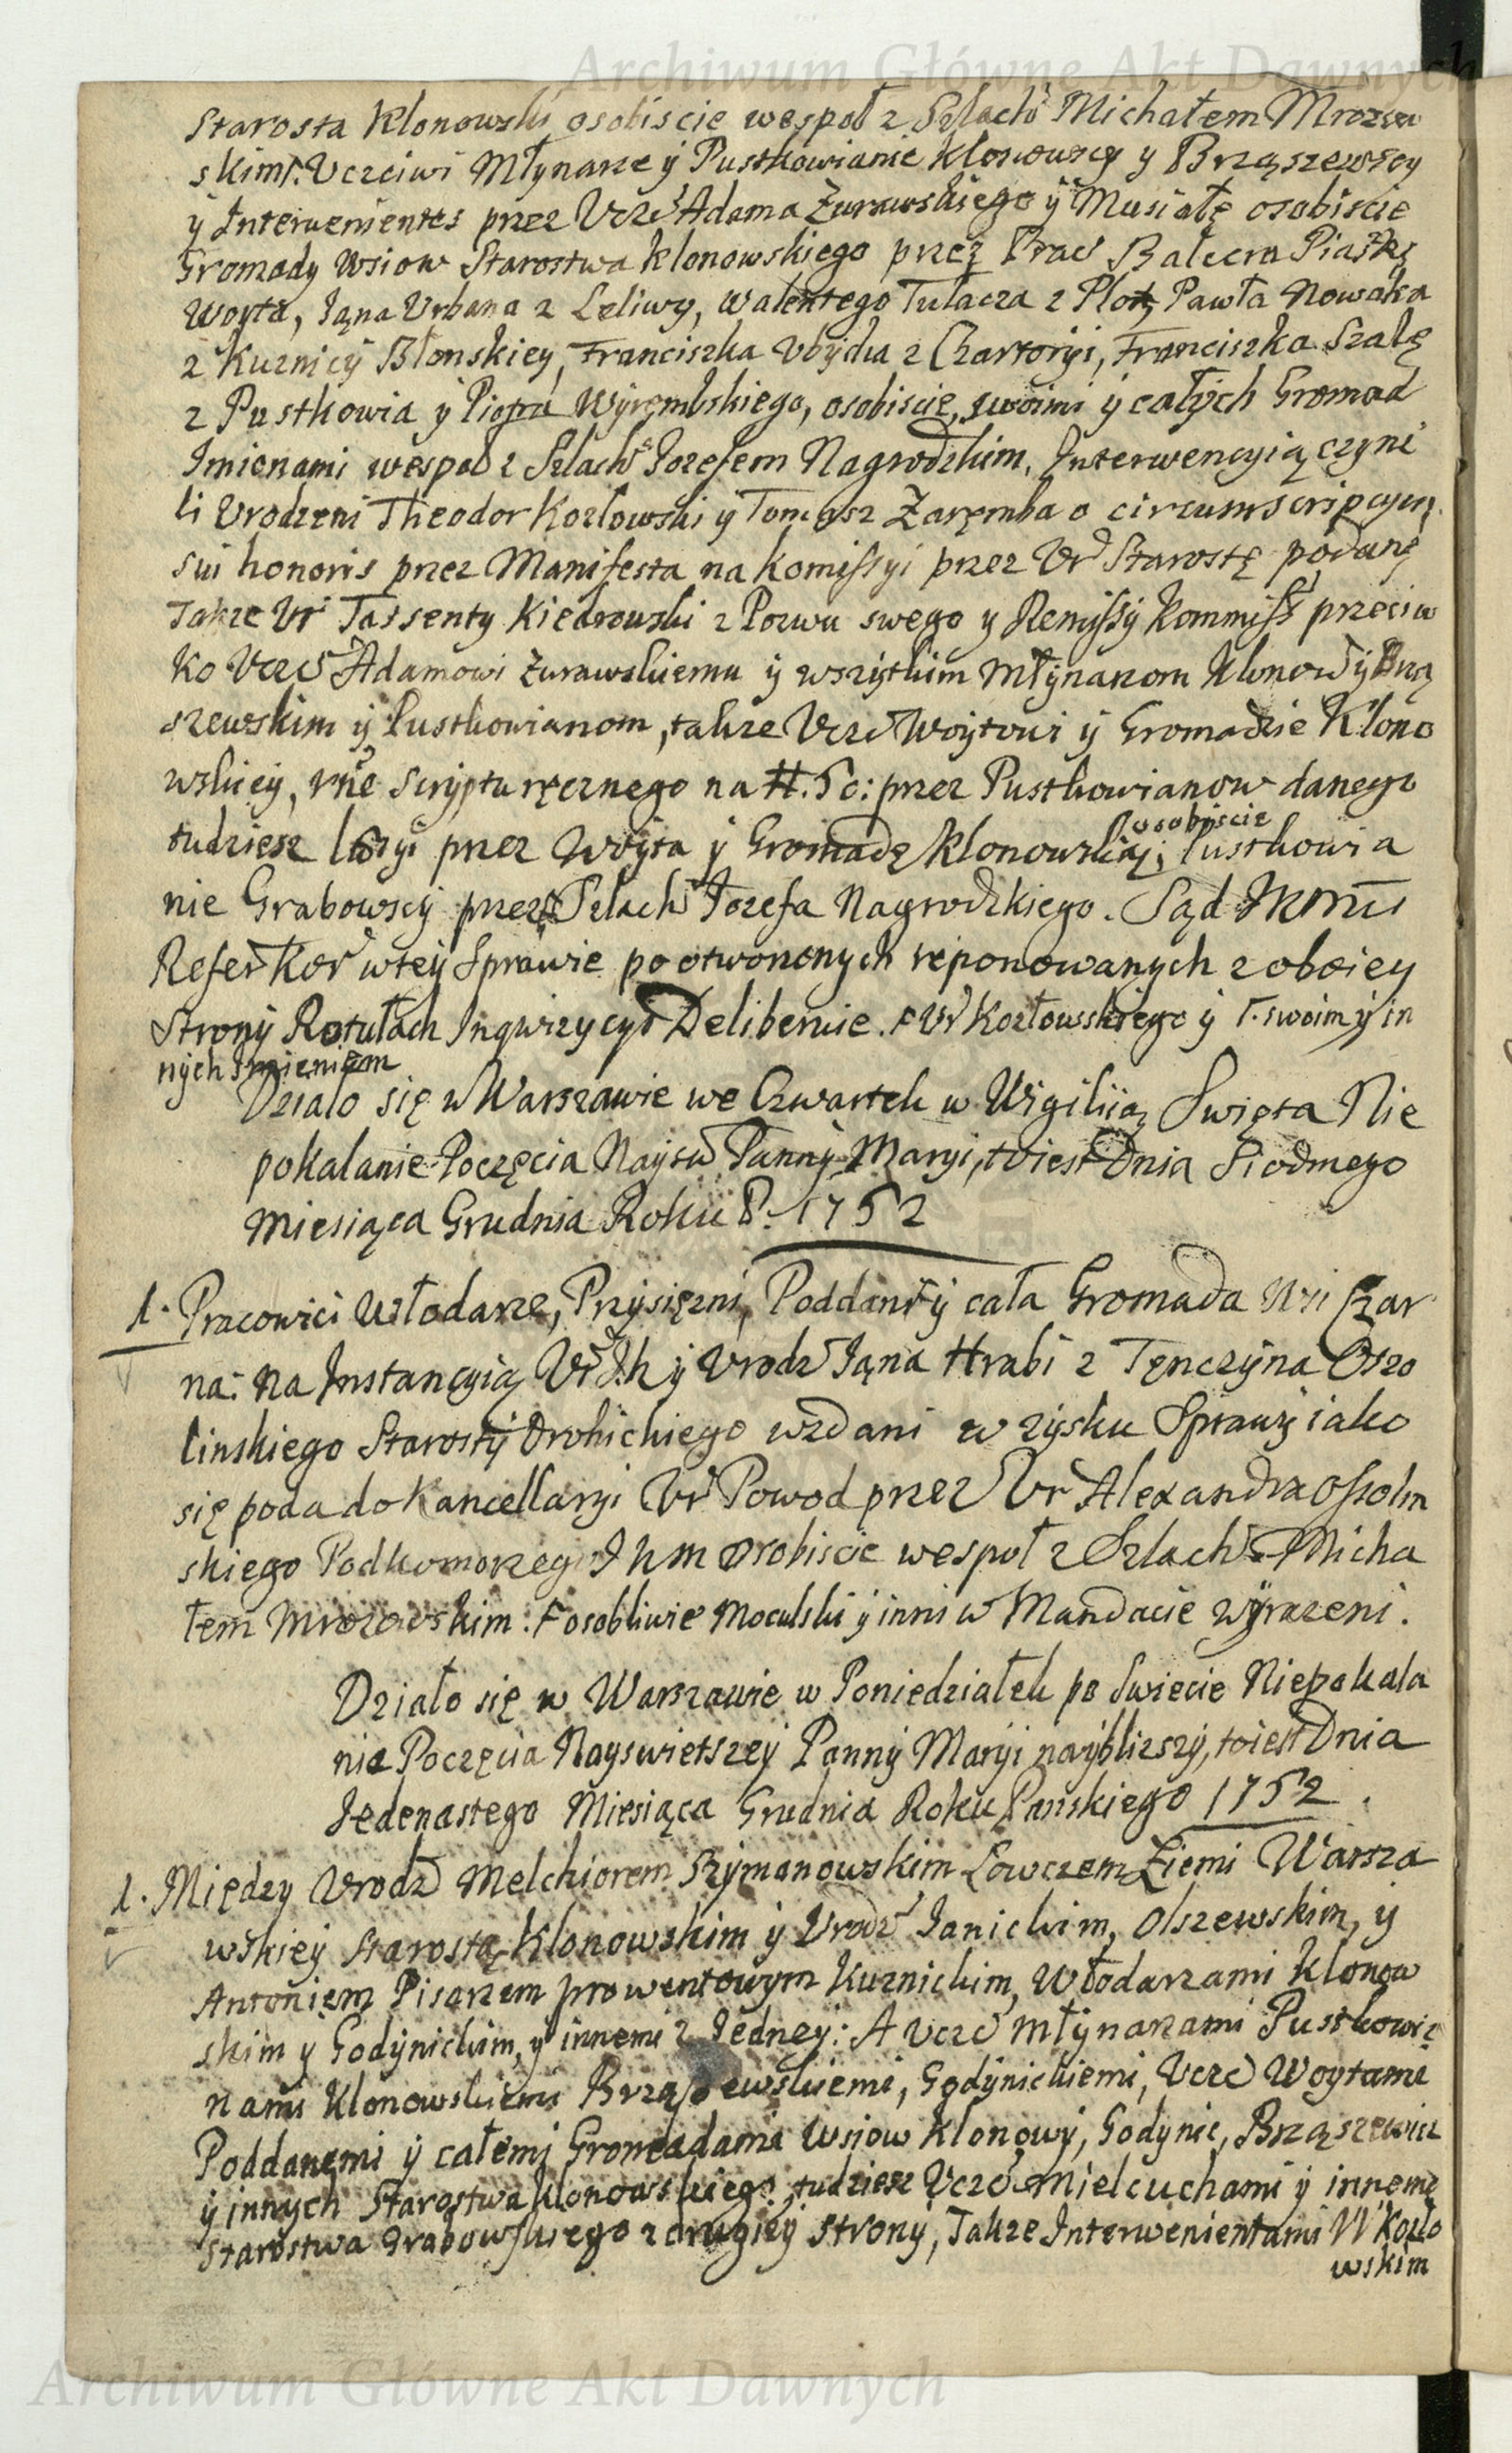 Archiwum Główne Akt Dawnych
Starosta Klonowski osobiscie wespoł z Szlach Michałem Mrozow
skim F. Uczciwi Młynarze ÿ Pustkowianie Klonowscy y Brząszewscy
ÿ Intervenientes przez Uczć Adama Żurawskiego ÿ Musiałę osobiscie
Gromady Wsiow Starostwa Klonowskiego przez Prac Balcera Piaskę
Woyta, Jąna Urbana z Leliwy, Walentego Tułacza z Plotę Pawła Nowaka
z Kuznicÿ Błonskiey, Franciszka Ubyćha z Czartoryi, Franciszka Szalę
z Pustkowia ÿ Piotra Wyrembskiego, osobiscie, swoimi ÿ całÿch Gromad
Imionami wespoł z Szlach Jozefem Nagrodzkim. Interwencyią czyni
li Urodzeni Theodor Kozłowski ÿ Tomasz Zaręmba o circumscripcyią
sui honoris przez Manifesta na Komissyi przez Ur Starostę podanę
Takze Ur Tassenty Kiedrowski z Pozwu swego y Remissÿ Kommiss przeciw
ko Uczć Adamowi Żurawskiemu ÿ wszÿtkim Młÿnarzom Klonow ÿ Brzą
szewskim ÿ Pustkowianom, takze Uczć Woÿtowi ÿ Gromadzie Klono
wskieÿ, rnę Scrÿptu ręcznego na #. 50: przez Pustkowianow danego
osobiscie
tudziesz przez Woÿta ÿ Gromadę Klonowską; Pustkowia
nie Grabowscÿ przez Szlach Jozefa Nagrodzkiego. Sąd
Refer Kor wteÿ Sprawie po otworzonych reponowanych z obóiey
Stronÿ Rotułach Inqwizycyi Deliberuie. F Ur Kozłowskiego ÿ F. swoim ÿ in
nÿch Imieniem
Działo się w Warszawie we Czwartek w Wigiliią Swięta Nie
pokalanie Poczęcia Nayśw Pannÿ Maryi, toiest Dnia Siodmego
Miesiąca Grudnia Roku P. 1752
1. Pracowici Włodarze, Przÿsięzni, Poddani ÿ cała Gromada Wsi Czar
na: na Instancyią Ur Jch ÿ Urodz Jąna Hrabi z Tęnczÿna Osso
linskiego Starostÿ Drohickiego wzdani w zÿsku Sprawÿ iako
się poda do Kancellaryi Ur Powod przez Ur Alexandra Ossolin
skiego Podkomorzego J K M Osobiscie wespoł z Szlach Micha
łem Mrozowskim. F osobliwie Mocalski ÿ inni w Mandacie wÿrazeni.
Działo się w Warszawie w Poniedziałek po Swiecie Niepokala
nie Poczęcia Nayswietszeÿ Pannÿ Maryi naÿblizszÿ, toiest Dnia
Jedenastego Miesiąca Grudnia Roku Panskiego 1752.
1. Między Urodz Melchiorem Szÿmanowskim Łowczem Ziemi Warsza
wskieÿ Starostą Klonowskim ÿ Urodz Janickim, Olszewskim, ÿ
Antoniem Pisarzem prowentowym Kuznickim, Włodarzami Klonow
skim y Godÿnickim, ÿ innemi z Jedneÿ: A Uczć Młÿnarzami Pustkowia
nami Klonowskiemi Brząszewskiemi, Godÿnickiemi, Uczć Woytami
Poddanemi ÿ całemi Gromadami Wsiow Klonowÿ, Godynic, Brząszewic
ÿ innych Starostwa Klonowskiego, tudziesz Uczć Mielcuchami ÿ innemi
Starostwa Grabowskiego z drugieÿ Strony, Takze Interwenientami W Kozło
wskim
Archiwum Główne Akt Dawnych